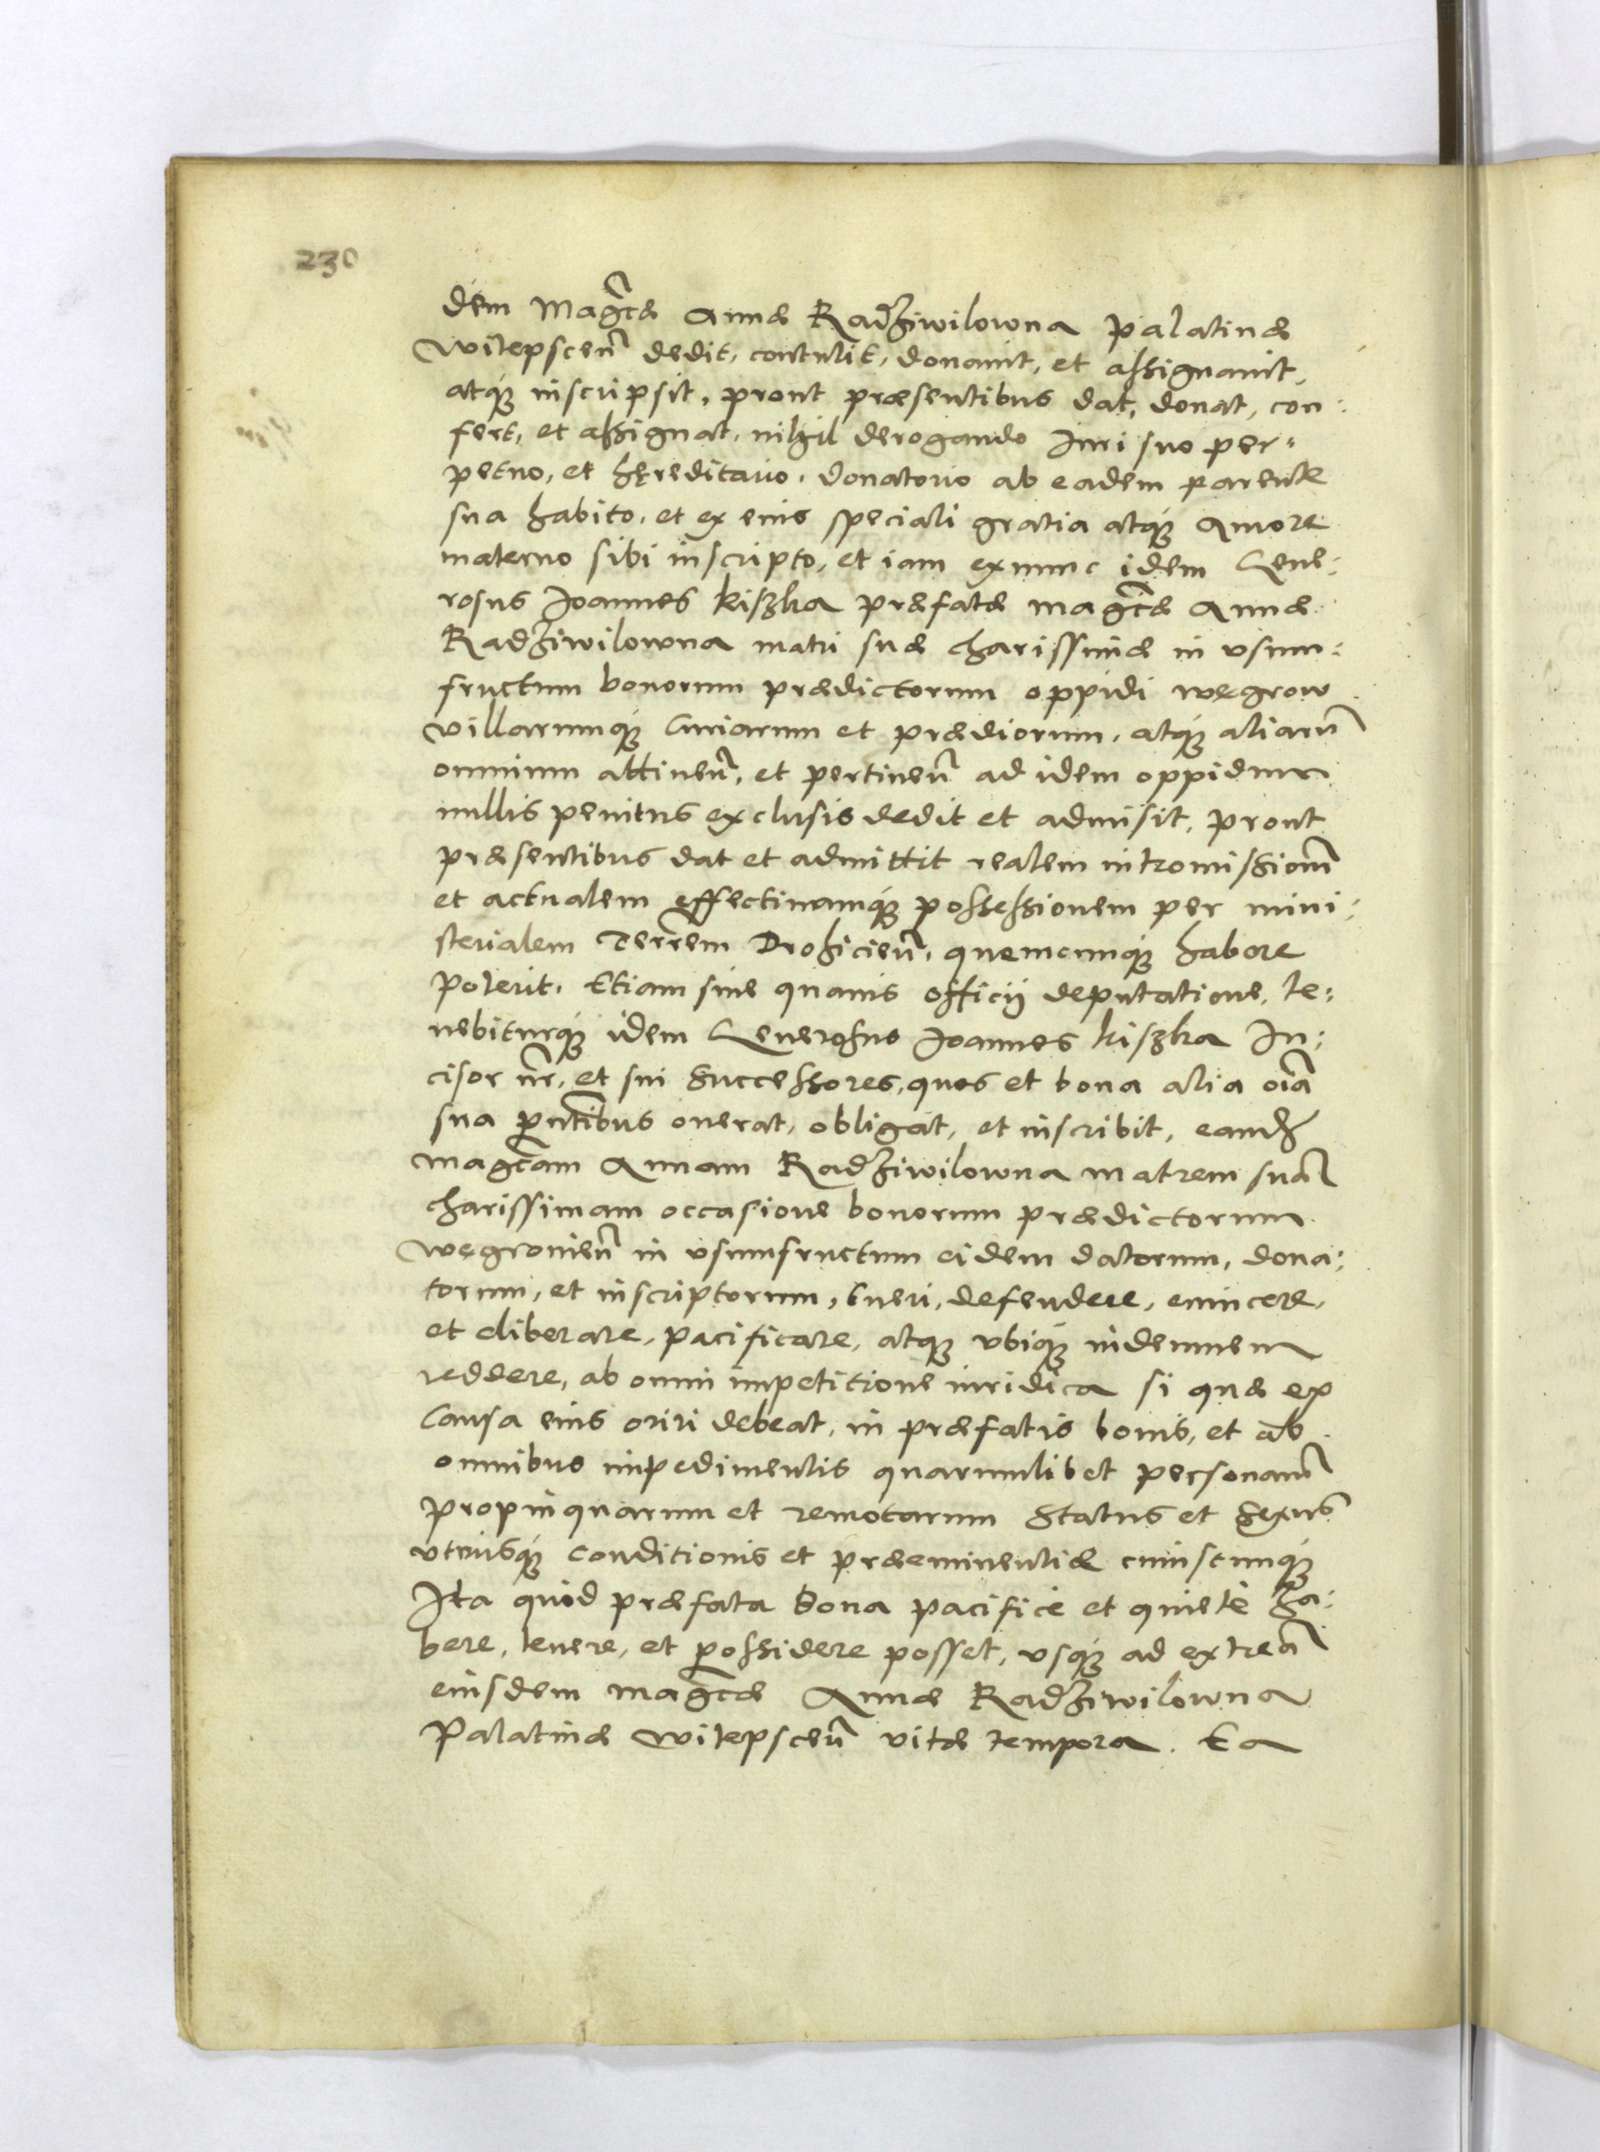 230
dem Mag̃cæ Annæ Radziwilowna Palatinæ
Witepscen̄ dedit, contulit, donauit, et assignauit,
atq̃ inscripsit, prout præsentibus dat, donat, con:
fert, et assignat, nihil derogando Iuri suo per=
petuo, et hęreditario, donatorio ab eadem parente
sua habito, et ex eius speciali gratia atq̃ Amore
materno sibi inscripto, et iam exnunc idem Gene:
rosus Joannes Kiszka præfatæ mag̃cæ Annæ
Radziwilowna matri suæ charissimæ in vsum:
fructum bonorum prædictorum oppidi Węgrow
villarumq̃ Curiarum et prædiorum, atq̃ aliarū
omnium attinen̄, et pertinen̄ ad idem oppidum
nullis penitus exclusis dedit et admisit, prout
præsentibus dat et admittit realem intromissionē
et actualem effectiuamq̃ possessionem per mini:
sterialem Terr̃em Drohicien̄, quemcunq̃ habere
poterit. Etiam sine quauis officij deputatione, te:
nebiturq̃ idem Generosus Joannes Kiszka In:
cisor nr̄, et sui Successores, quos et bona alia oīa
sua p̄ntibus onerat, obligat, et inscribit, eand̃
mag̃cam Annam Radziwilowna matrem suā
charissimam occasione bonorum prædictorum
Węgrouien̄ in vsumfructum eidem datorum, dona:
torum, et inscriptorum, tueri, defendere, euincere,
et eliberare, pacificare, atq̃ vbiq̃ indemnem
reddere, ab omni impetitione iuridica si quæ ex
Causa eius oriri debeat, in præfatis bonis, et ab
omnibus impedimentis quarumlibet personarū
propinquarum et remotarum Status et Sexus
vtriusq̃ conditionis et præeminentiæ cuiuscunq̃
Ita quòd præfata bona pacificè et quietè ha:
bere, tenere, et possidere posset, vsq̃ ad extreā
eiusdem mag̃cæ Annæ Radziwilowna
Palatinæ Witepscen̄ vitæ tempora. Ea